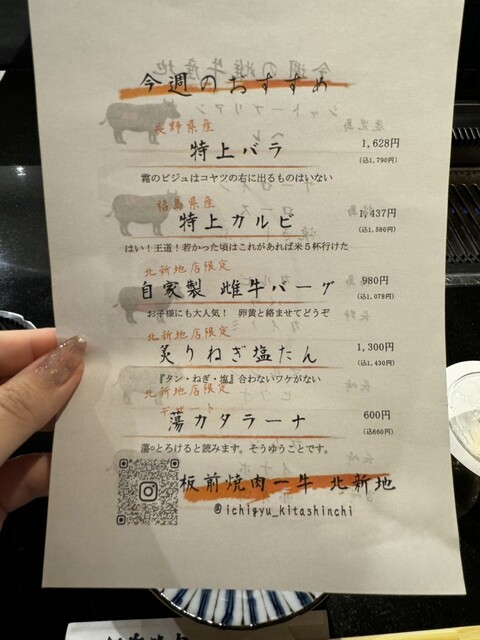 今週のおすすめ
長野県産
特上バラ
1,628円
(込1,790円)
霜のビジュはコヤツの右に出るものはいない
福島県産
特上カルビ
1,437円
(込1,580円)
はい！王道！若かった頃はこれがあれば米５杯行けた
北新地店限定
自家製 雌牛バーグ
980円
(込1,078円)
お子様にも大人気！ 卵黄と絡ませてどうぞ
北新地店限定
炙りねぎ塩たん
1,300円
(込1,430円)
『タン・ねぎ・塩』合わないワケがない
北新地店限定
デザート
蕩カタラーナ
600円
(込660円)
蕩○とろけると読みます。そうゆうことです。
板前焼肉一牛 北新地
@ichigyu_kitashinchi